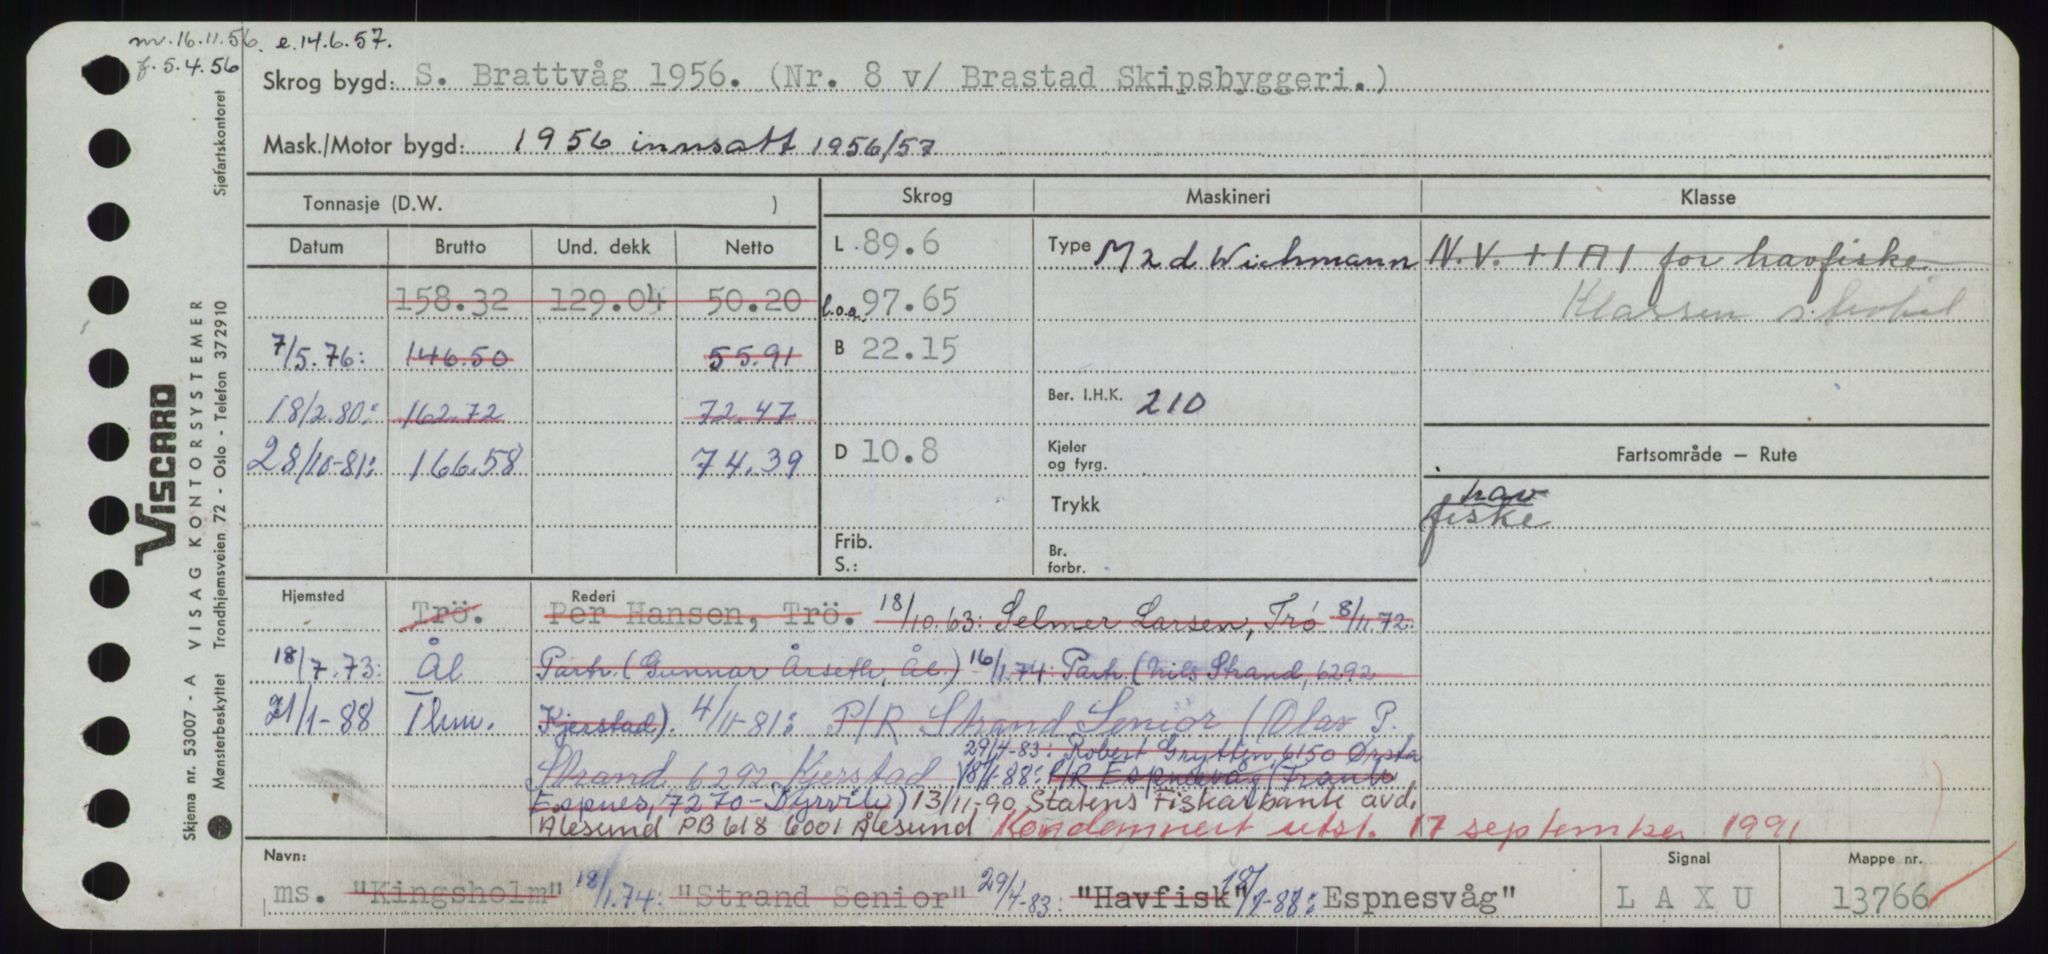 m. 16.11.56. e. 14.6.57.
f. 5.4.56
Skrog bygd: S. Brattvåg 1956. (Nr. 8 v/ Brastad Skipsbyggeri.)
Mask./Motor bygd: 1956 innsatt 1956/57
Tonnasje (D.W. ) Skrog Maskineri Klasse
Datum Brutto Und. dekk Netto L 89.6 Type M 2 d Wichmann N.V. +1A1 for havfiske
158.32 129.04 50.20 l.o.a. 97.65 Klassen strøket
7/5.76: 146.50 55.91 B 22.15
18/2.80: 162.72 72.47 Ber. I.H.K. 210
28/10-81: 166.58 74.39 D 10.8 Kjeler og fyrg. Fartsområde – Rute
Trykk hav
fiske
Frib.
S.: Br. forbr.
Hjemsted Rederi
Trö. Per Hansen, Trö. 18/10.63: Selmer Larsen, Trö 8/11.72:
18/7.73: Ål Partr. (Gunnar Årseth, Ål.) 16/1.74: Partr. (Nils Strand, 6292
21/1-88 Thm. Kjerstad). 4/11-81: P/R Strand Senior (Olav P.
29/4-83: Robert Grytten, 6150 Ørsta
Strand, 6292 Kjerstad) 18/1-88: P/R Espnesvåg (Frank
Espnes, 7270 - Dyrvik) 13/11-90, Statens Fiskarbank avd.
Ålesund, PB 618 6001 Ålesund Kondemnert utst. 17 september 1991
Navn: Signal Mappe nr.
ms. "Kingsholm" 18/1.74: "Strand Senior" 29/4-83: "Havfisk" 18/1-88: Espnesvåg" LAXU 13766
VISCARD
VISAG KONTORSYSTEMER
Skjema nr. 53007 - A
Mønsterbeskyttet Trondhjemsveien 72 - Oslo - Telefon 372910 Sjøfartskontoret